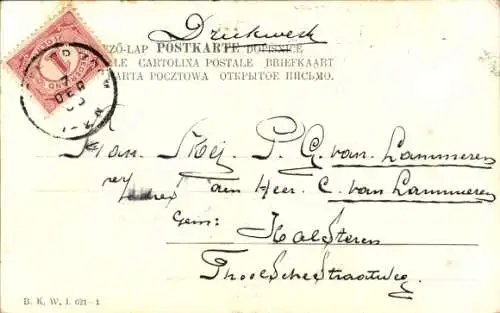 Drukwerk
EZŐ-LAP POSTKARTE DOPISNICE
LE CARTOLINA POSTALE BRIEFKAART
ARTA POCZTOWA ОТКРЫТОЕ ПИСЬМО.
1
7
DEC
Mej. P. G. van Lammeren
Adres den Heer C. van Lammeren
Gem: Halsteren
Tholschestraatweg.
B. K. W. I. 621-1